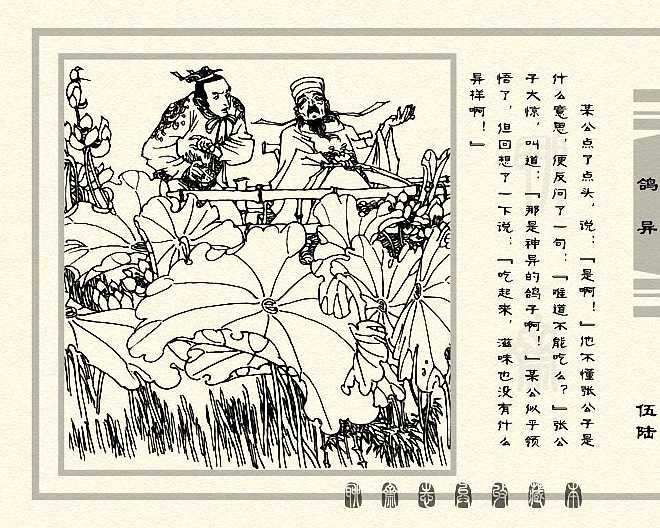 某公点了点头，说：“是啊！”他不懂张公子是
什么意思，便反问了一句：“难道不能吃么？”张公
子大惊，叫道：“那是神异的鸽子啊！”某公似乎领
悟了，但回想了一下说：“吃起来，滋味也没有什么
异样啊！”
鸽异
伍陆
聊斋志异收藏本